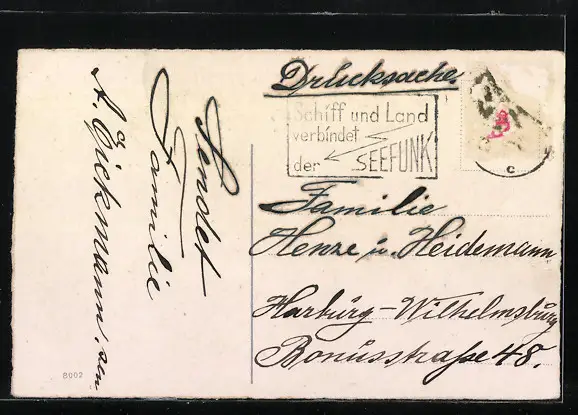 Sendet
Familie
A. Eickmann, sen
8002
Drucksache.
Schiff und Land
verbindet
der SEEFUNK
c
Familie
Henze u. Heidemann
Harburg-Wilhelmsburg
Bonusstraße 48.